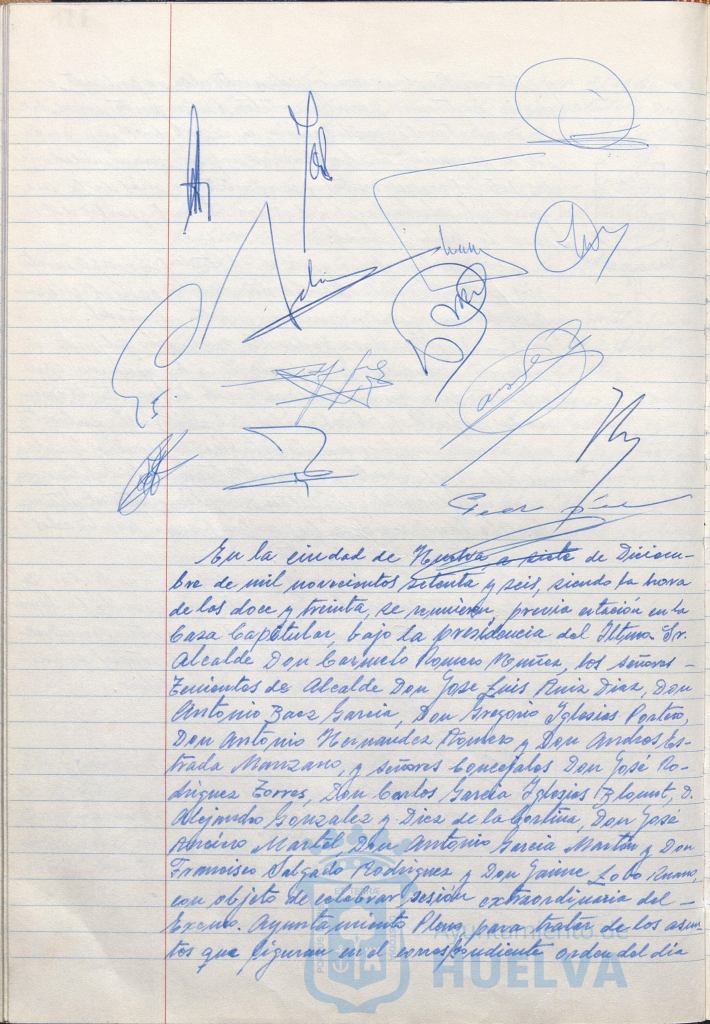 En la ciudad de Huelva a siete de Diciem-
bre de mil novecientos setenta y seis, siendo la hora
de las doce y treinta, se reunieron, previa citación en la
Casa Capitular, bajo la presidencia del Iltmo. Sr.
Alcalde Don Carmelo Romero Núñez, los señores
Tenientes de Alcalde Don José Luis Ruiz Diaz, Don
Antonio Baez Garcia, Don Gregorio Iglesias Portero,
Don Antonio Hernandez Romero y Don Andres Es-
trada Manzano, y señores Concejales Don José Ro-
driguez Torres, Don Carlos Garcia Iglesias Blount, D.
Alejandro Gonzalez y Diez de la Cortina, Don José
Martel, Don Antonio Garcia Martin y Don
Francisco Salgado Rodriguez y Don Jaime Lobo
con objeto de celebrar sesión extraordinaria del
Excmo. Ayuntamiento Pleno para tratar de los asun-
tos que figuran en el correspondiente orden del día
Ayuntamiento de
HUELVA